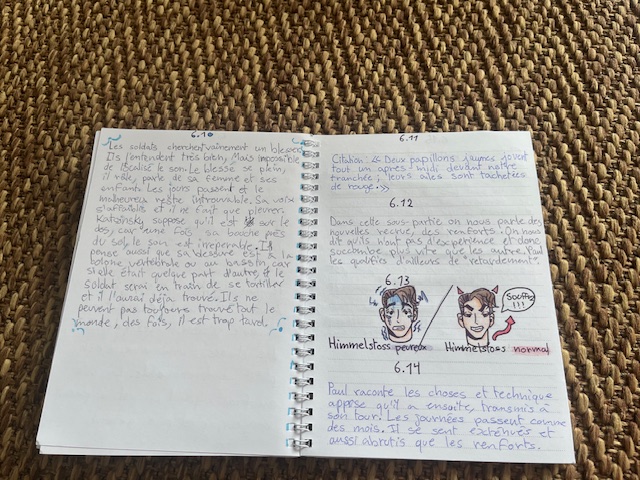 6.10
Les soldats cherchent vainement un blessé.
Ils l'entendent très bien, Mais impossible
de localisé le son. Le blessé se plein,
il râle, parle de sa femme et ses
enfants. Les jours passent et le
malheureux reste introuvable. Sa voix
s'affaiblis et il ne fait que pleurer.
Katczinsky suppose qu'il est sur le
dos, car une fois sa bouche près
du sol, le son est irreperable. Il
pense aussi que sa blessure est à la
colonne vertébrale ou au bassin, car
si elle était quelque part d'autre, et le
soldat serai en train de se tortiller
et il l'aurai déja trouvé. Ils ne
peuvent pas toujours trouvé tout le
monde, des fois, il est trop tard.
6.11
Citation: « Deux papillons jaunes jouent
tout un après-midi devant notre
tranchée ; leurs ailes sont tachetées
de rouge. »
6.12
Dans celle sous-partie on nous parle des
nouvelles recrue, des renforts. On nous
dit qu'ils n'ont pas d'expérience et donc
succombe plus vite que les autre. Paul
les qualifis d'ailleurs de "retardement"
6.13
Souffrez
!!!
Himmelstoss peureux
Himmelstoss normal
6.14
Paul raconte les choses et technique
appose qu'il a ensuite, transmis à
son tour. Les journées passent comme
des mois. Il se sent exténués et
aussi abrutis que les renforts.